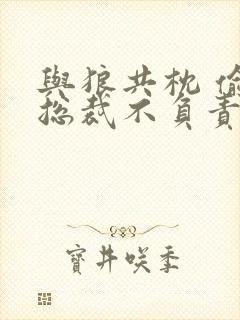 與狼共枕 偷
總裁不負責
寶井咲季